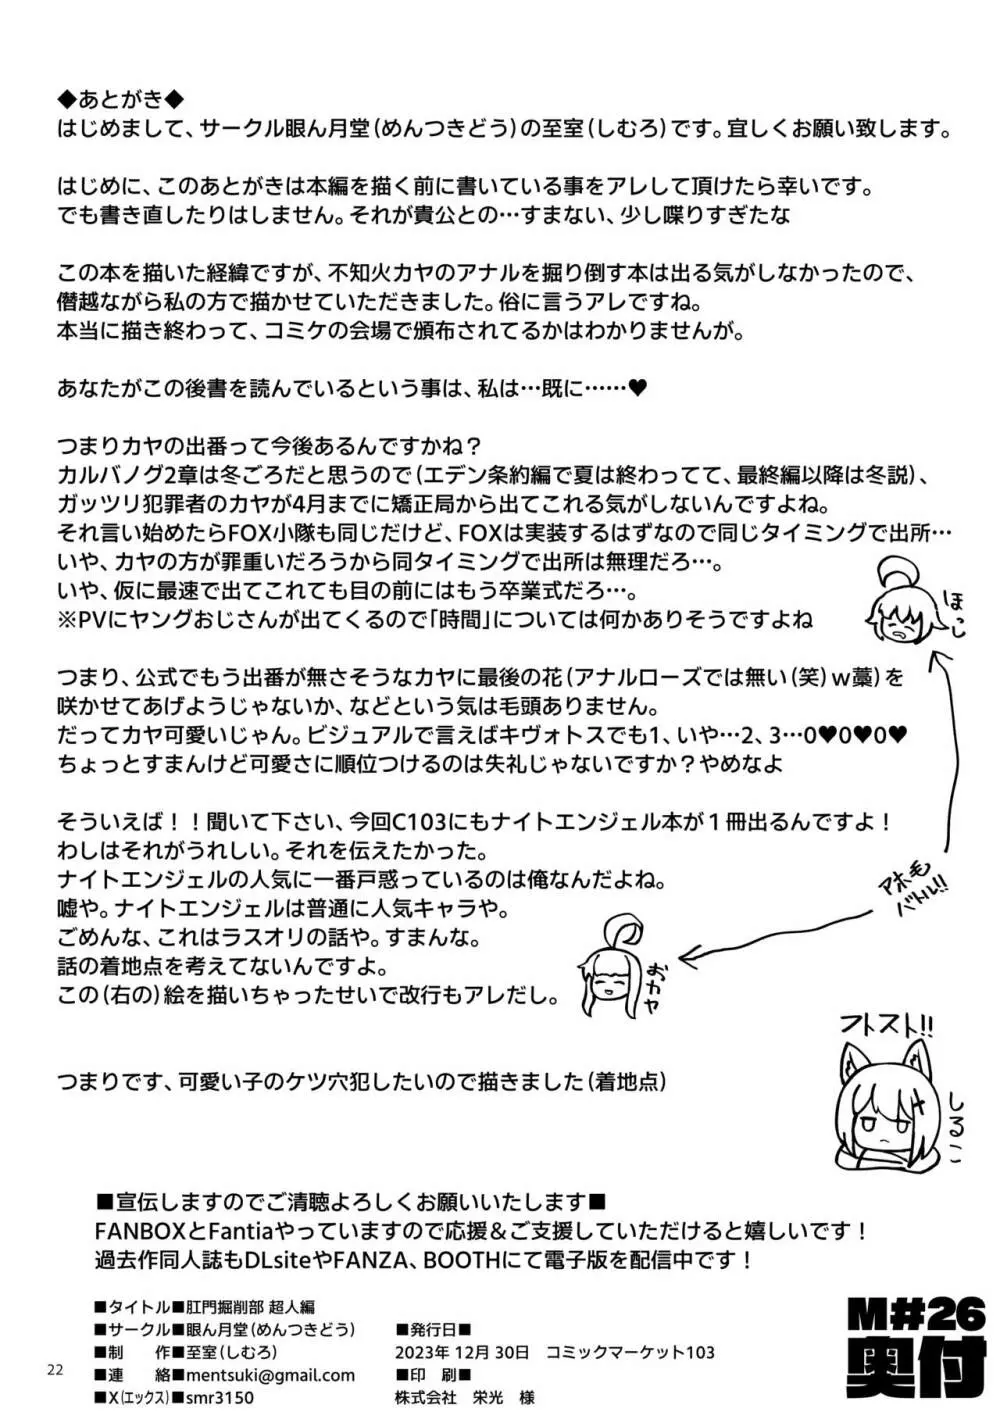 ◆あとがき◆
はじめまして、サークル眼ん月堂(めんつきどう)の至室(しむろ)です。宜しくお願い致します。
はじめに、このあとがきは本編を描く前に書いている事をアレして頂けたら幸いです。
でも書き直したりはしません。それが貴公との…すまない、少し喋りすぎたな
この本を描いた経緯ですが、不知火カヤのアナルを掘り倒す本は出る気がしなかったので、
僭越ながら私の方で描かせていただきました。俗に言うアレですね。
本当に描き終わって、コミケの会場で頒布されてるかはわかりませんが。
あなたがこの後書を読んでいるという事は、私は…既に……♥
つまりカヤの出番って今後あるんですかね?
カルバノグ2章は冬ごろだと思うので(エデン条約編で夏は終わってて、最終編以降は冬説)、
ガッツリ犯罪者のカヤが4月までに矯正局から出てこれる気がしないんですよね。
それ言い始めたらFOX小隊も同じだけど、FOXは実装するはずなので同じタイミングで出所…
いや、カヤの方が罪重いだろうから同タイミングで出所は無理だろ…。
いや、仮に最速で出てこれても目の前にはもう卒業式だろ…。
※PVにヤングおじさんが出てくるので「時間」については何かありそうですよね
ほっし
つまり、公式でもう出番が無さそうなカヤに最後の花(アナルローズでは無い(笑)w藁)を
咲かせてあげようじゃないか、などという気は毛頭ありません。
だってカヤ可愛いじゃん。ビジュアルで言えばキヴォトスでも1、いや…2、3…0♥0♥0♥
ちょっとすまんけど可愛さに順位つけるのは失礼じゃないですか?やめなよ
そういえば!!聞いて下さい、今回C103にもナイトエンジェル本が1冊出るんですよ!
わしはそれがうれしい。それを伝えたかった。
ナイトエンジェルの人気に一番戸惑っているのは俺なんだよね。
嘘や。ナイトエンジェルは普通に人気キャラや。
ごめんな、これはラスオリの話や。すまんな。
話の着地点を考えてないんですよ。
この(右の)絵を描いちゃったせいで改行もアレだし。
アホ毛
バトル!!
おカヤ
フトスト!!
しるこ
つまりです、可愛い子のケツ穴犯したいので描きました(着地点)
■宣伝しますのでご清聴よろしくお願いいたします■
FANBOXとFantiaやっていますので応援&ご支援していただけると嬉しいです!
過去作同人誌もDLsiteやFANZA、BOOTHにて電子版を配信中です!
■タイトル■肛門掘削部 超人編
■サークル■眼ん月堂(めんつきどう)
■制　作■至室(しむろ)
■連　絡■mentsuki@gmail.com
■X(エックス)■smr3150
■発行日■
2023年 12月 30日　コミックマーケット103
■印　刷■
株式会社　栄光　様
M#26
奥付
22